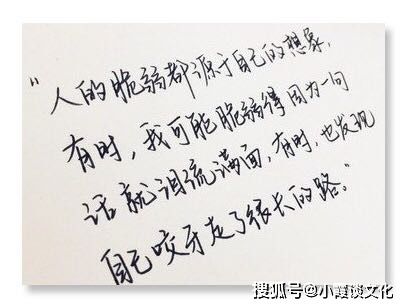 "人的脆弱都源于自己的想象，
有时，我可能脆弱得因为一句
话就泪流满面，有时，也发现
自己咬牙走了很长的路。"
搜狐号@小霞谈文化